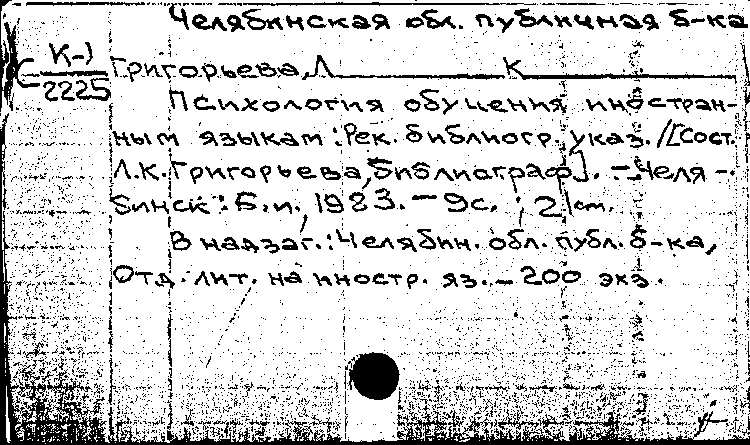 Челябинская обл. публичная б-ка
К-1
С 2225
Григорьева, Л К
Психология обучения иностран-
ным языкам : Рек. библиогр. указ. / [Сост.
Л.К. Григорьева, библиограф]. — Челя-
бинск : Б.и., 1983. — 9с. ; 21 см.
В надзаг.: Челябин. обл. публ. б-ка,
Отд. лит. на иностр. яз. — 200 экз.